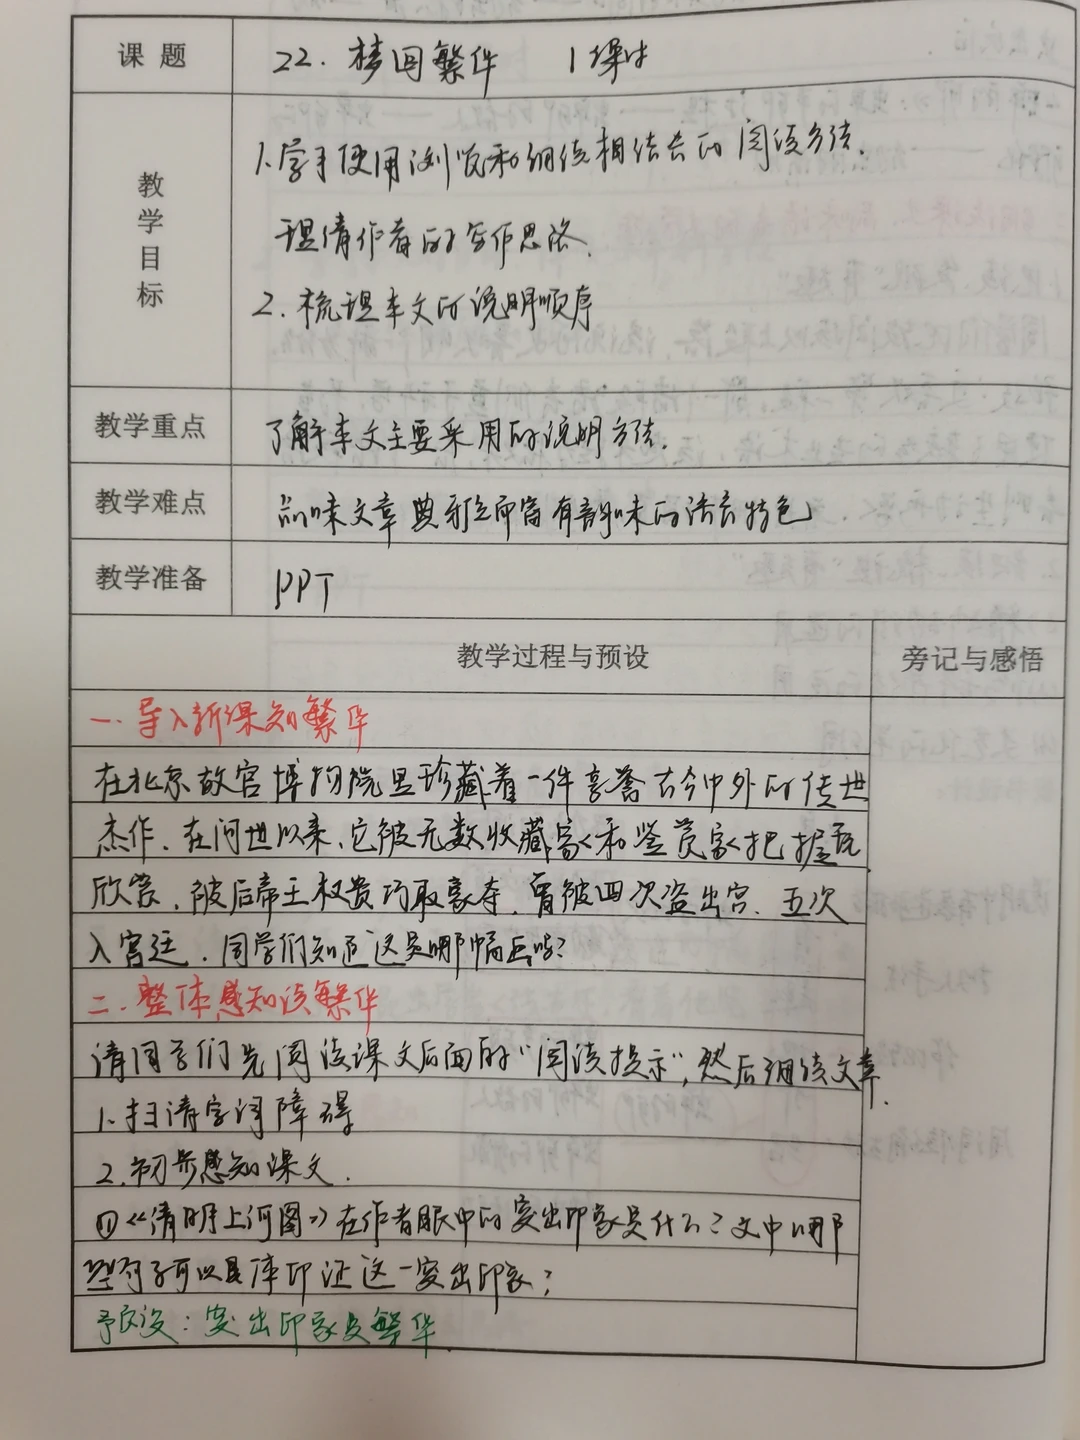 课题 22. 梦回繁华 1课时
教学目标
1. 学习使用浏览和细读相结合的阅读方法,
理清作者的写作思路.
2. 梳理本文的说明顺序
教学重点 了解本文主要采用的说明方法.
教学难点 品味文章典雅而富有韵味的语言特色
教学准备 PPT
教学过程与预设 旁记与感悟
一. 导入新课知繁华
在北京故宫博物院里珍藏着一件享誉古今中外的传世
杰作. 在问世以来, 它被无数收藏家和鉴赏家把握玩
欣赏, 被后帝王权贵巧取豪夺, 曾被四次盗出宫、五次
入宫廷. 同学们知道这是哪幅画吗?
二. 整体感知读繁华
请同学们先阅读课文后面的“阅读提示”, 然后细读文章.
1. 扫清字词障碍
2. 初步感知课文.
①《清明上河图》在作者眼中的突出印象是什么? 文中哪
些句子可以具体印证这一突出印象?
预设: 突出印象是繁华.